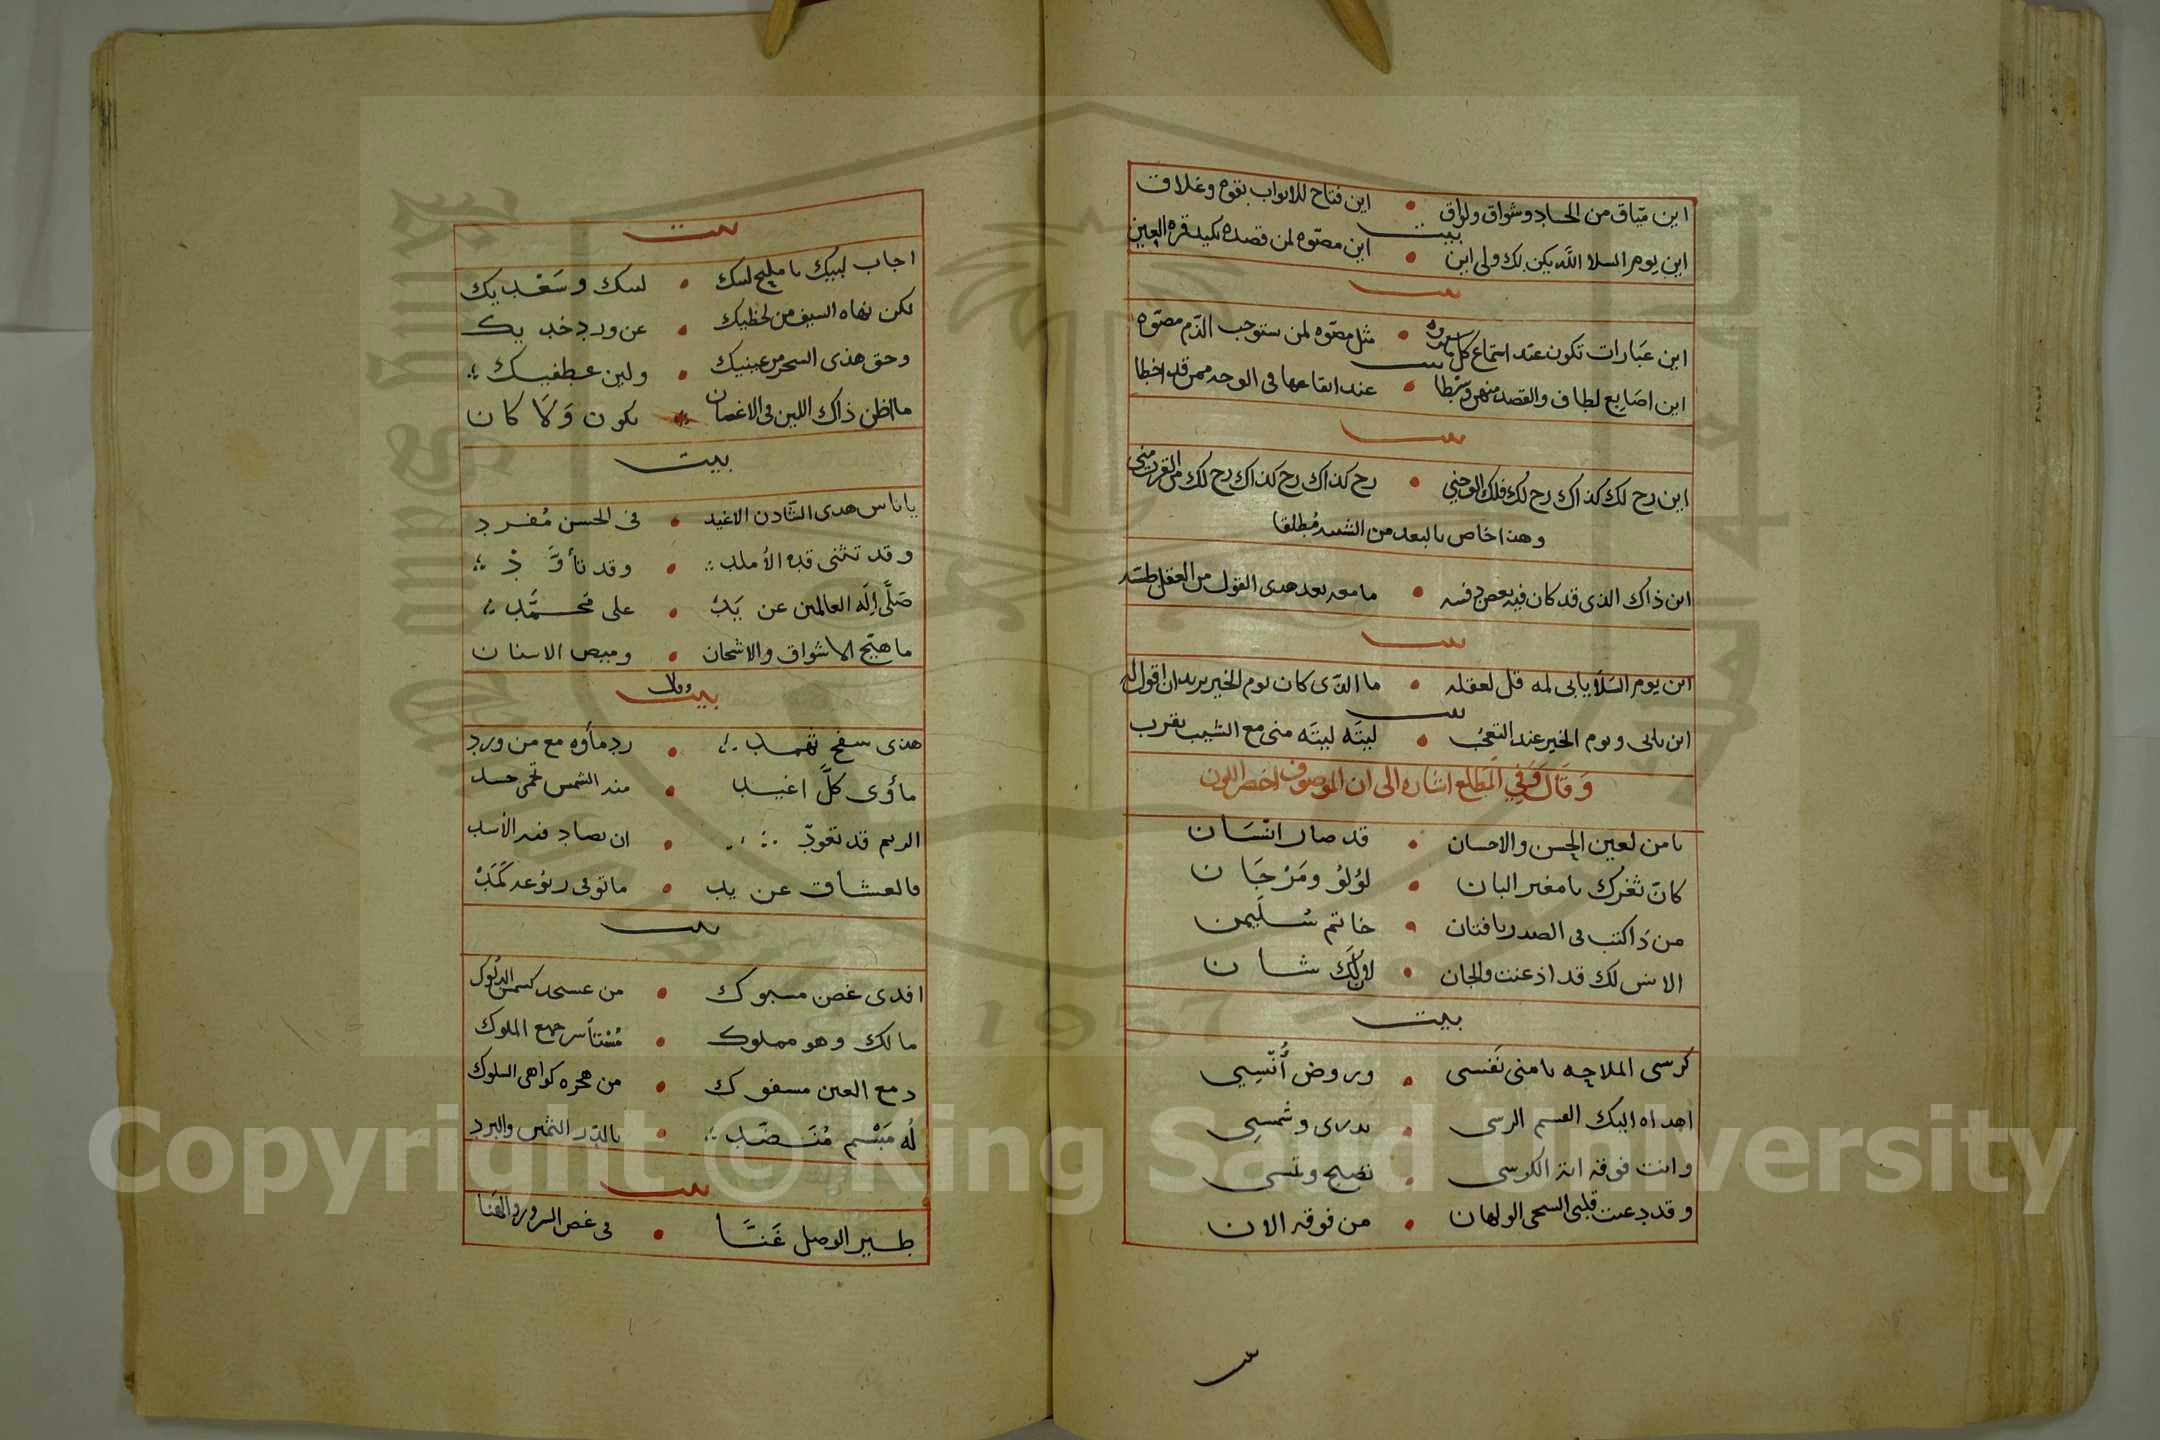 اين متياق من الحساد وشواق ولواق • اين فتاح للابواب بقوه وغلاق
بيت
اين يوم السلا الله يكن لك ولي اين • اين مصتوه لمن قصده يكيد قره العين
بيت
اين عبارات تكون عند استماع كل • مثل مصتوه لمن ستوجب الذم مصتوه
بيت
اين اصابع لطاف والقصد منهن وسطا • عند ايقاعها في الوجه ممن قد اخطا
بيت
اين رح لك كذاك رح لك فلك الوجني • رح كذاك رح كذاك رح لك من القرب مني
وهذا خاص بالبعد من الشبه مطلقا
اين ذاك الذي قد كان فيه بعض دفسه • ما معه بعد هدى القول من العقل
بيت
اين يوم السلا يابى لمه قل لعقله • ما الذي كان يوم الخير يريد ان اقول له
بيت
اين يابى ويوم الخير عند التعجب • ليته ليته منى مع الشيب يقرب
وقال وفي المطلع اشاره الى ان الموصوف اخضر اللون
يا من لعين الحسن والاحسان • قد صار انسان
كان ثغرك يا مغير البان • لؤلؤ ومرجان
من ذا كتب في الصدر يا فتان • خاتم سليمن
الانس لك قد اذعنت والجان • لان لك شان
بيت
كرسي الملاحه يا منى نفسي • وروض أنسي
اهداه اليك القسم الرسي • بدري وشمسي
وانت فوقه اية الكرسي • نصبح وتمسي
وقد دعيت قلبي السمحي الولهان • من فوقه الان
بيت
اجاب لبيك يا مليح لبيك • لبيك وسعديك
لكن نهاه السيف من لحظيك • عن ورد خديك
وحق هذى السحر من عينيك • ولين عطفيك
ما اظن ذاك اللين في الاغصان • يكون ولا كان
بيت
يا ناس هدى الشادن الاغيد • في الحسن مفرد
وقد تثنى قده الأملد • وقد تأوّد
صلّى إله العالمين عن يد • على محمّد
ما هيّج الاشواق والاشجان • وميض الاسنان
بيت
هذى سفح ثهمد • رد مأوه مع من ورد
مأوى كلّ اغيد • منه الشمس تخفى حسد
الريم قد تعود • ان يصاد فيه الأسد
فالعشاق عن يد • ماتو في ربوعه كمد
بيت
افدى غصن مسبوك • من عسجد كشمس الدلوك
مالك وهو مملوك • مستأسر جميع الملوك
دمع العين مسفوك • من هجره كواهي السلوك
له مبسم منضد • بالدر الثمين والبرد
بيت
طير الوصل غنّا • في غصن السرور والهنا